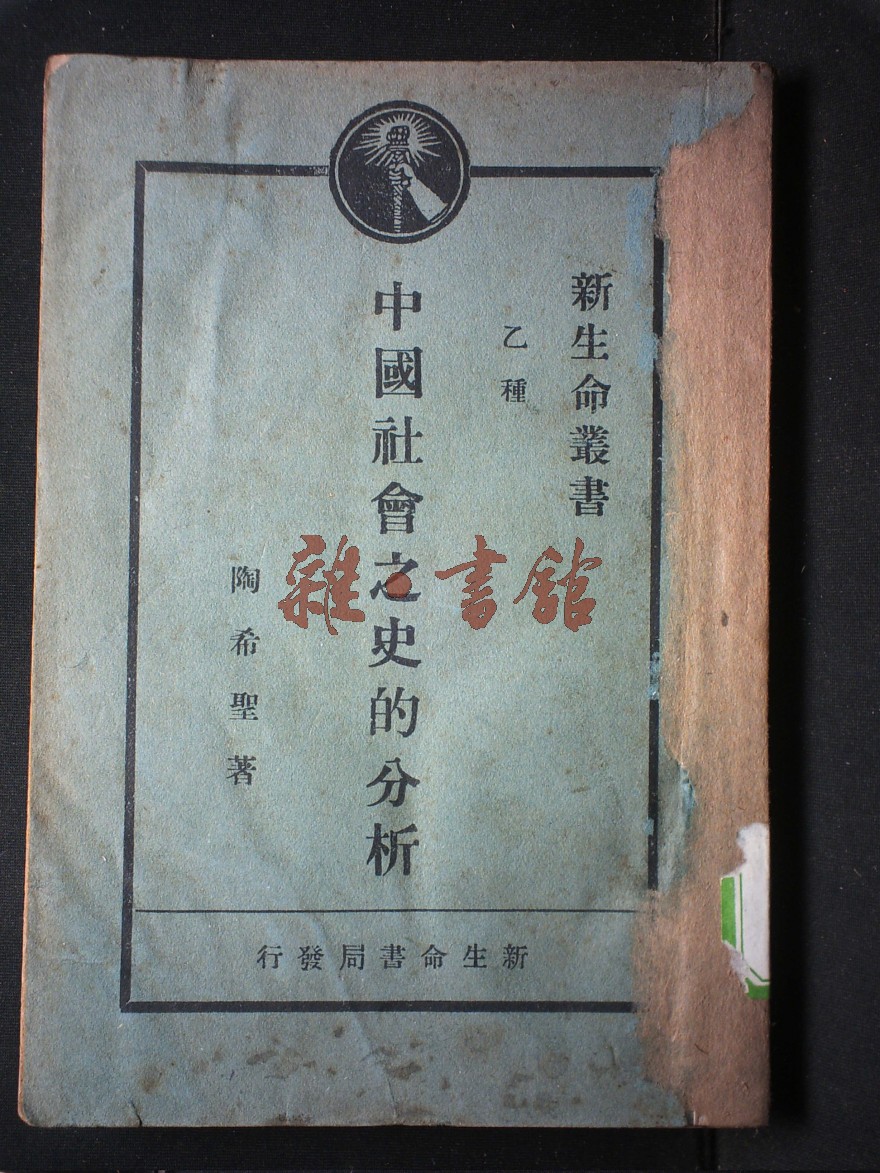 新生命叢書
乙種
中國社會之史的分析
陶希聖著
新生命書局發行
雜書館